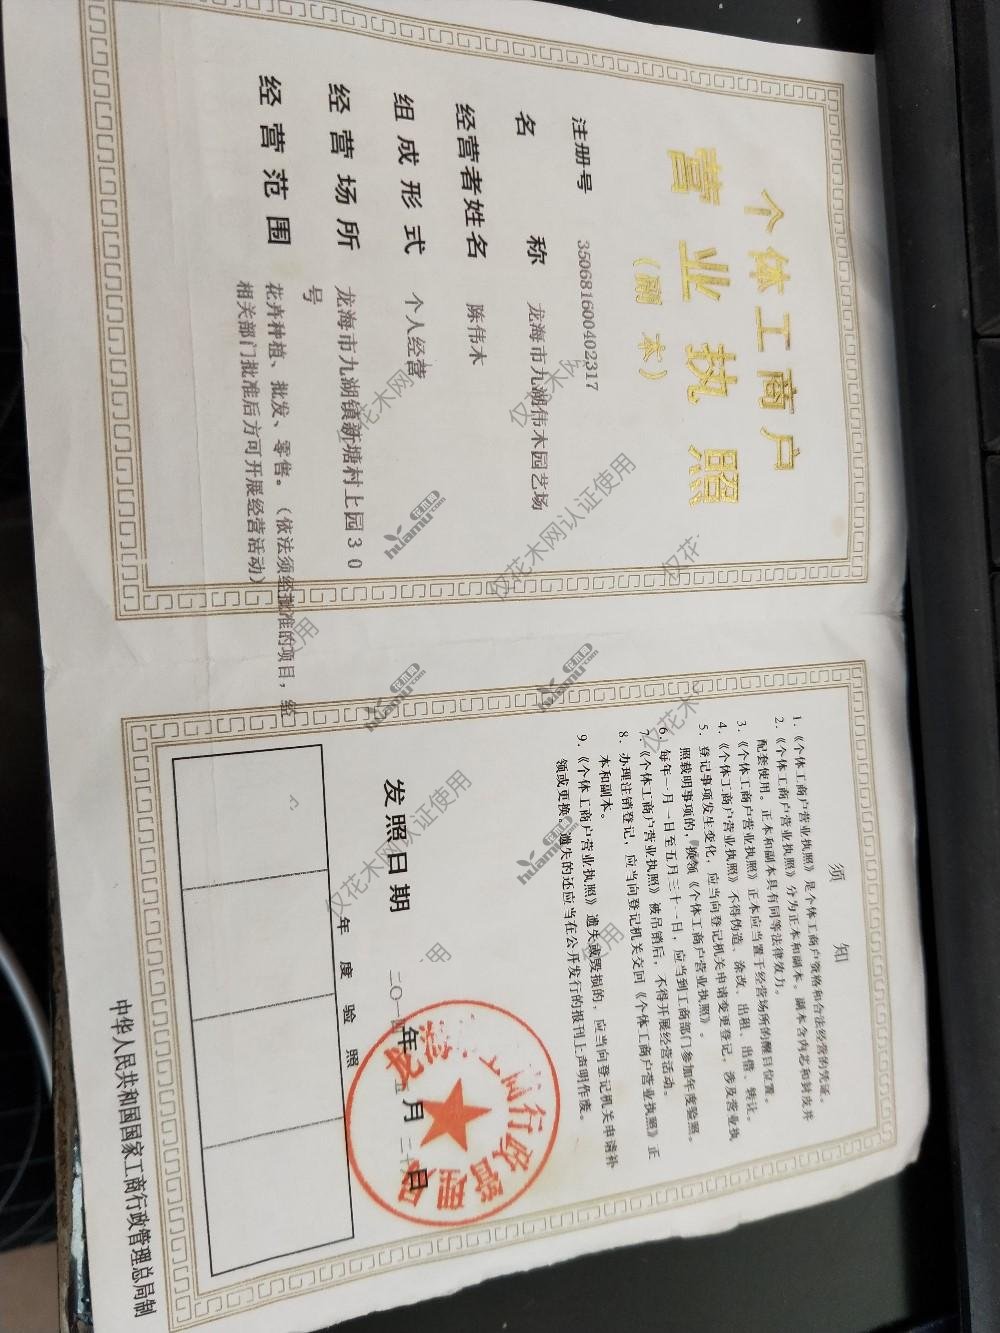 个体工商户
营业执照
（副本）
注册号 350681600402317
名称 龙海市九湖伟木园艺场
经营者姓名 陈伟木
组成形式 个人经营
经营场所 龙海市九湖镇新塘村上园30
号
经营范围 花卉种植、批发、零售。（依法须经批准的项目，经
相关部门批准后方可开展经营活动）
须知
1.《个体工商户营业执照》是个体工商户资格和合法经营的凭证。
2.《个体工商户营业执照》分为正本和副本。副本含内芯和封皮并
配套使用。正本和副本具有同等法律效力。
3.《个体工商户营业执照》正本应当置于经营场所的醒目位置。
4.《个体工商户营业执照》不得伪造、涂改、出租、出借、转让。
5. 登记事项发生变化，应当向登记机关申请变更登记，涉及营业执
照载明事项的，换领《个体工商户营业执照》。
6. 每年一月一日至五月三十一日，应当到工商部门参加年度验照。
7.《个体工商户营业执照》被吊销后，不得开展经营活动。
8. 办理注销登记，应当向登记机关交回《个体工商户营业执照》正
本和副本。
9.《个体工商户营业执照》遗失或毁损的，应当向登记机关申请补
领或更换，遗失的还应当在公开发行的报刊上声明作废。
发照日期 二〇一四年五月二十日
龙海 工商行政管理局
年度验照
中华人民共和国国家工商行政管理总局制
仅花木网认证使用
仅花木网认证使用
花木网
huamu.com
花木网
huamu.com
花木网
huamu.com
花木网
huamu.com